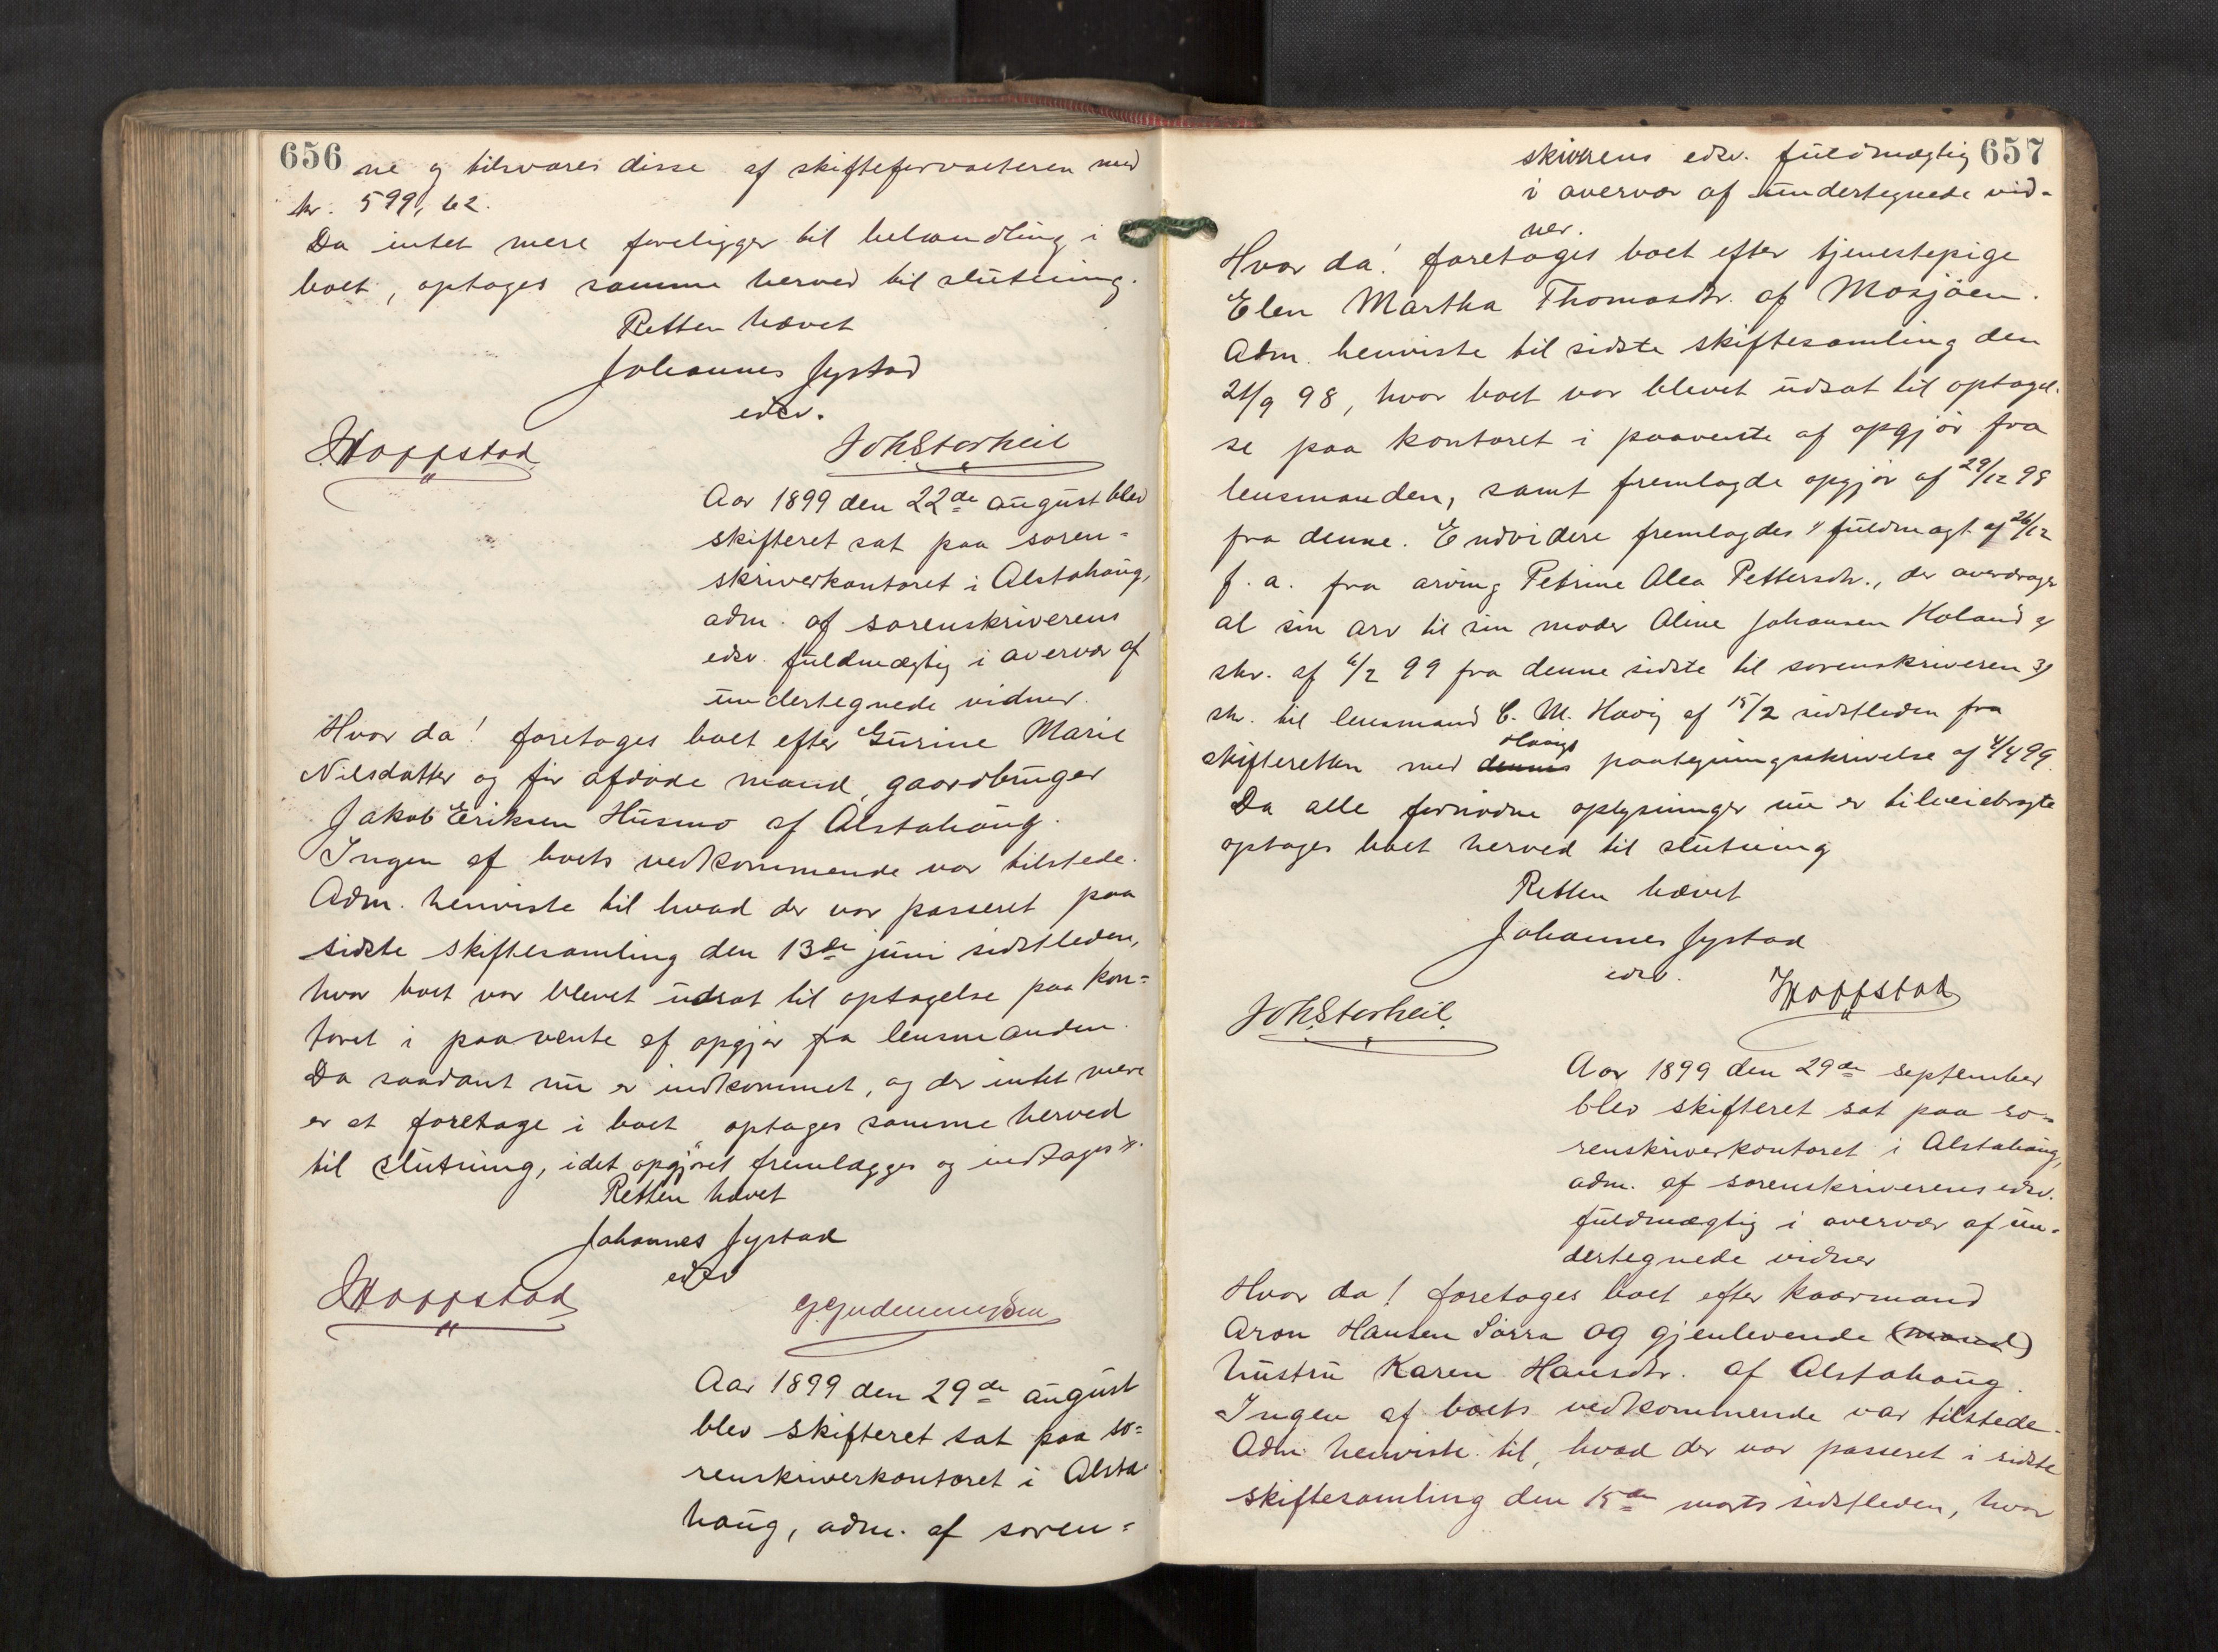 656
ne og tilsvares disse af skifteforvalteren med
kr. 599,62.
Da intet mere foreligger til behandling i
boet, optages samme herved til slutning.
Retten hævet
Johannes Jystad
edsv.
Hoppstad
Joh. Storheil
Aar 1899 den 22de august blev
skifteret sat paa soren-
skriverkontoret i Alstahaug,
adm. af sorenskriverens
edsv. fuldmægtig i overvær af
undertegnede vidner.
Hvor da! foretoges boet efter Gurine Marie
Nilsdatter og før afdøde mand, gaardbruger
Jakob Eriksen Husmo af Alstahaug.
Ingen af boets vedkommende var tilstede.
Adm. henviste til hvad der var passeret paa
sidste skiftesamling den 13de juni sidstleden,
hvor boet var blevet udsat til optagelse paa kon-
toret i paavente af opgjør fra lensmanden.
Da saadant nu er indkommet, og der intet mere
er at foretage i boet optages samme herved
til slutning, idet opgjøret fremlægges og indtages
Retten hævet
Johannes Jystad
edsv
Hoppstad
Aar 1899 den 29de august
blev skifteret sat paa so-
renskriverkontoret i Alsta-
haug, adm. af soren-
657
skiverens edsv. fuldmægtig
i overvær af undertegnede vid-
ner.
Hvor da! foretoges boet efter tjenestepige
Elen Martha Thomasdtr. af Mosjøen.
Adm. henviste til sidste skiftesamling den
21/9 98, hvor boet var blevet udsat til optagel-
se paa kontoret i paavente af opgjør fra
lensmanden, samt fremlagde opgjør af 29/12 98
fra denne. Endvidere fremlagdes fuldmagt af 26/12
f. a. fra arving Petrine Alea Pettersdtr., der overdrager
al sin arv til sin moder Aline Johansen Holand og
skr. af 6/2 99 fra denne sidste til sorenskriveren
skr. til lensmand C. M. Havig af 15/2 sidstleden fra
Havigs
skifteretten med dennes paategningsskrivelse af 4/4 99.
Da alle fornødne oplysninger nu er tilveiebragte
optages boet herved til slutning
Retten hævet
Johannes Jystad
edsv.
Hoppstad
Joh. Storheil
Aar 1899 den 29de september
blev skifteret sat paa so-
renskriverkontoret i Alstahaug,
adm. af sorenskriverens edsv.
fuldmægtig i overvær af un-
dertegnede vidner
Hvor da! foretoges boet efter kaarmand
Aron Hansen Sørra og gjenlevende (mand)
hustru Karen Hansdtr. af Alstahaug.
Ingen af boets vedkommende var tilstede.
Adm. henviste til, hvad der var passeret i sidste
skiftesamling den 15de marts sidstleden, hvor